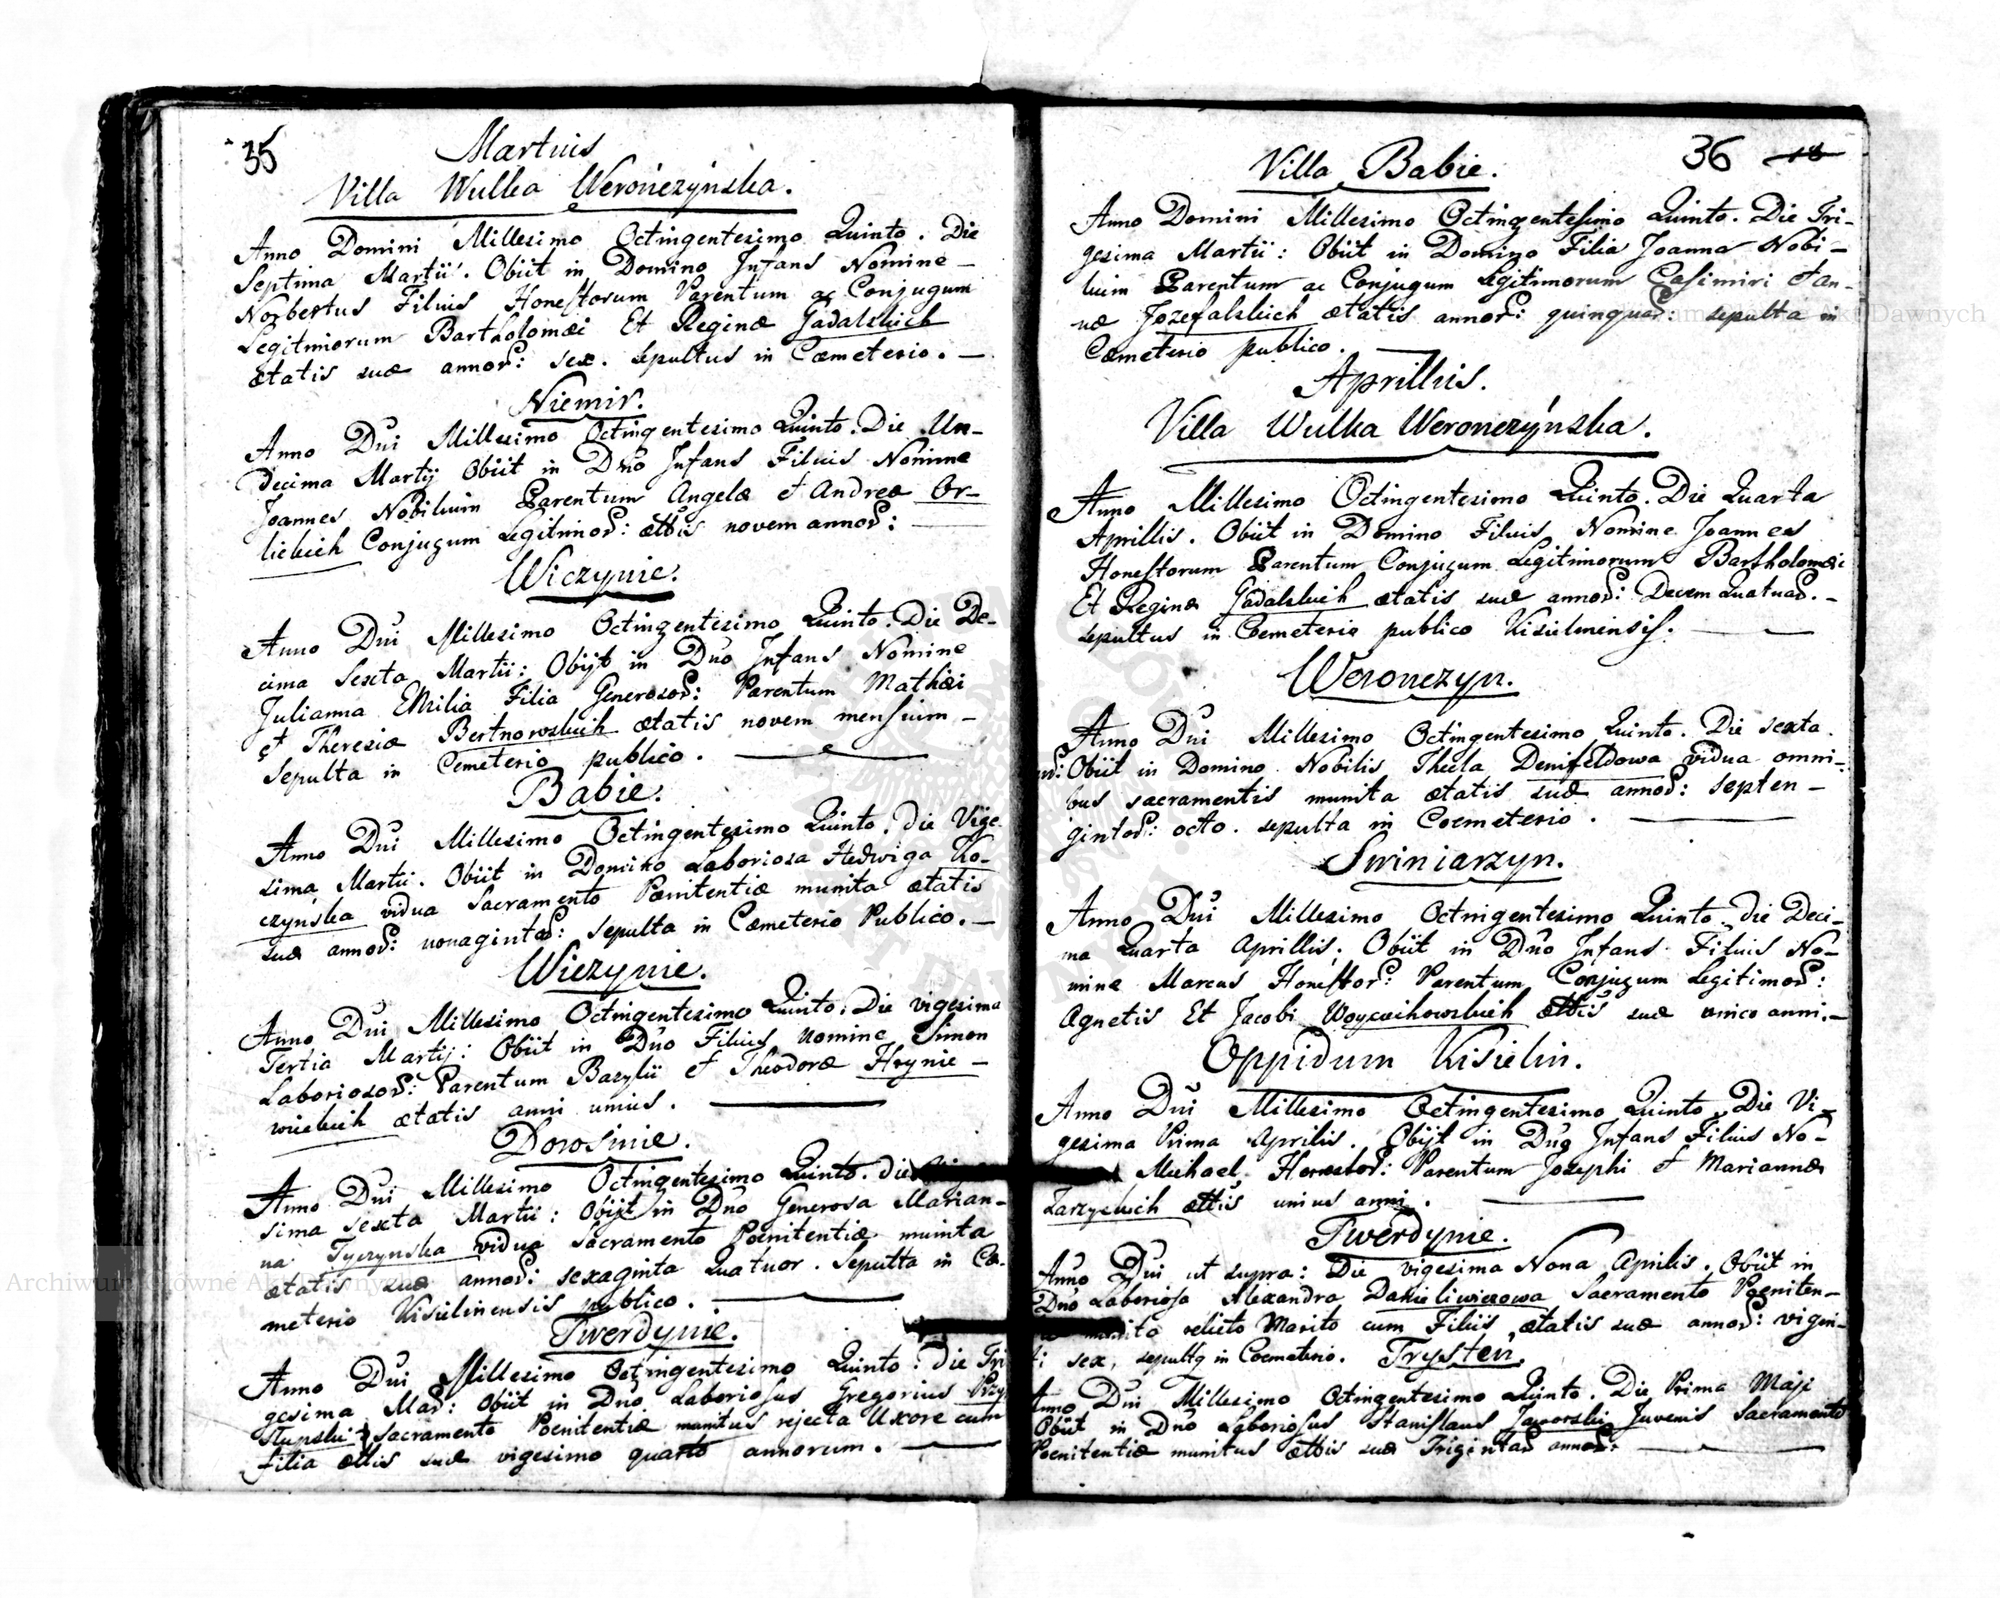 35
Martius
Villa Wulka Werończyńska.
Anno Domini Millesimo Octingentesimo Quinto. Die
Septima Martii. Obiit in Domino Infans Nomine
Norbertus Filius Honestorum Parentum ac Conjugum
Legitimorum Bartholomæi Et Reginæ Gadalskich
ætatis suæ annor: sex. sepultus in Cœmeterio. —
Niemir.
Anno Dni Millesimo Octingentesimo Quinto. Die Un-
decima Martij Obiit in Dno Infans Filius Nomine
Joannes Nobilium Parentum Angelæ et Andreæ Or-
lickich Conjugum Legitimor: ættis novem annor:
Wiczynie.
Anno Dni Millesimo Octingentesimo Quinto. Die De-
cima Sexta Martii: Obijt in Dno Infans Nomine
Julianna Emilia Filia Generosor: Parentum Mathæi
et Theresiæ Bertnowskich ætatis novem mensium —
Sepulta in Cemeterio publico.
Babie.
Anno Dni Millesimo Octingentesimo Quinto. die Vige-
sima Martii. Obiit in Domino Laboriosa Hedwiga Ko-
czyńska vidua Sacramento Pœnitentiæ munita ætatis
suæ annor: nonagintar: sepulta in Cœmeterio Publico. —
Wiczynie.
Anno Dni Millesimo Octingentesimo Quinto. Die vigesima
Tertia Martij: Obiit in Dno Filius nomine Simon
Laboriosor: Parentum Bazylii et Theodoræ Hrynie-
wickich ætatis anni unius.
Dorosinie.
Anno Dni Millesimo Octingentesimo Quinto. die
sima sexta Martii: Obijt in Dno Generosa Marian-
na Tyczynska vidua Sacramento Pœnitentiæ munita
ætatis suæ annor: sexaginta Quatuor. Sepulta in Cæ-
meterio Kisielinensis publico.
Twerdynie.
Anno Dni Millesimo Octingentesimo Quinto: Die Tri
gesima Mar: Obiit in Dno Laboriosus Gregorius Przy
Stupski Sacramento Pœnitentiæ munitus rejecta Uxore cum
filia ættis suæ vigesimo quarto annorum.
36 18
Villa Babie.
Anno Domini Millesimo Octingentesimo Quinto. Die Tri-
gesima Martii: Obiit in Domino Filia Joanna Nobi-
lium Parentum ac Conjugum Legitimorum Casimiri et An-
næ Jozefalskich ætatis annor: quinquar: sepulta in
Cœmeterio publico.
Aprillius.
Villa Wulka Weronczyńska.
Anno Millesimo Octingentesimo Quinto. Die Quarta
Aprillis. Obiit in Domino Filius Nomine Joannes
Honestorum Parentum Conjugum Legitimorum Bartholomæi
Et Reginæ Gadalskich ætatis suæ annor: Decem Quatuor. —
sepultus in Cœmeterio publico Kisielinensis:
Weronczyn.
Anno Dni Millesimo Octingentesimo Quinto. Die sexta.
Obiit in Domino Nobilis Thecla Denifeldowa vidua omni-
bus sacramentis munita ætatis suæ annor: septen-
gintor: octo. sepulta in Cœmeterio.
Swiniarzyn.
Anno Dni Millesimo Octingentesimo Quinto. die Deci-
ma Quarta Aprillis; Obiit in Dno Infans Filius No-
mine Marcus Honestor: Parentum Conjugum Legitimor:
Agnetis Et Jacobi Woyciechowskich ættis suæ unico anni. —
Oppidum Kisielin.
Anno Dni Millesimo Octingentesimo Quinto. Die Vi-
gesima Prima Aprilis. Obijt in Dno Infans Filius No-
Michael Honestor: Parentum Josephi et Mariannæ
Zarzyckich ættis unius anni.
Twerdynie.
Anno Dni ut supra: Die vigesima Nona Aprilis. Obiit in
Dno Laboriosa Alexandra Danieliwiczowa Sacramento Pœniten-
munita relicto Marito cum Filiis ætatis suæ annor: vigin-
ti sex, sepulta in Cœmeterio. Trysten.
Anno Dni Millesimo Octingentesimo Quinto. Die Prima Maji
Obiit in Dno Laboriosus Stanislaus Jaworski Juvenis Sacramento
Pœnitentiæ munitus ættis suæ Trigintar annor:
Archiwum Główne Akt Dawnych